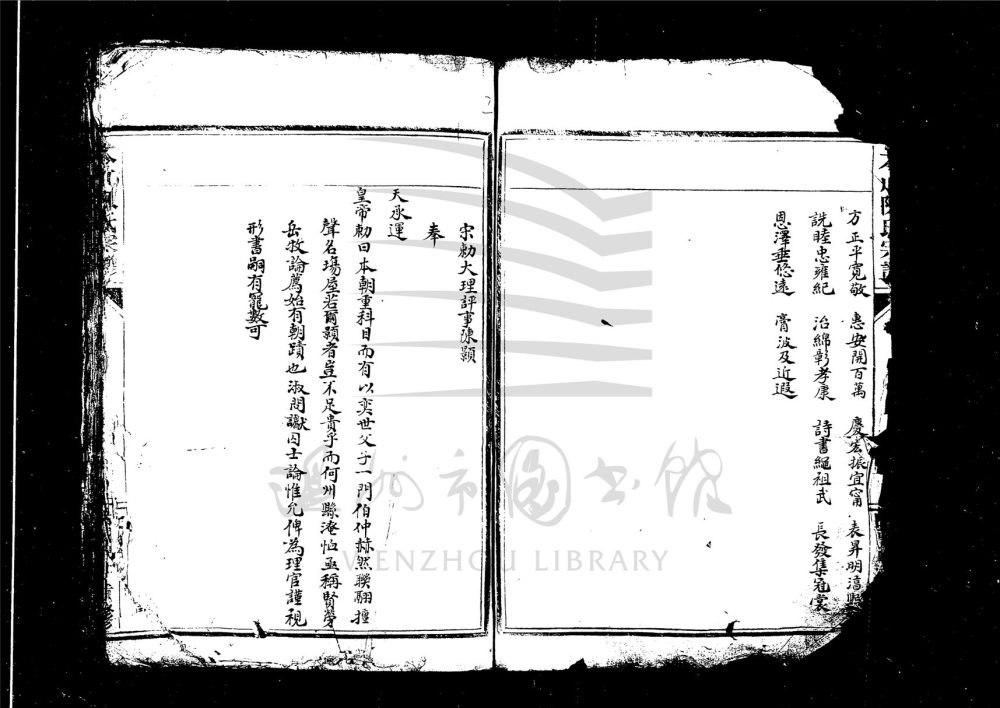 方正平寬敬　惠安開百萬　慶宏振宜甯　表昇明湻熙
詵睦忠雍紀　治綿彰孝康　詩書繩祖武　長發集冠裳
恩澤垂悠遠　膏波及近遐
宋勅大理評事陳顥
奉
天承運
皇帝勅曰本朝重科目而有以奕世父子一門伯仲赫然聯翩擅
聲名塲屋若爾顥者豈不足貴乎而何州縣淹恤亟稱賢勞
岳牧論薦始有朝蹟也淑問讞囚士論惟允俾為理官謹視
形書嗣有寵數可
溫州市圖書館
WENZHOU LIBRARY